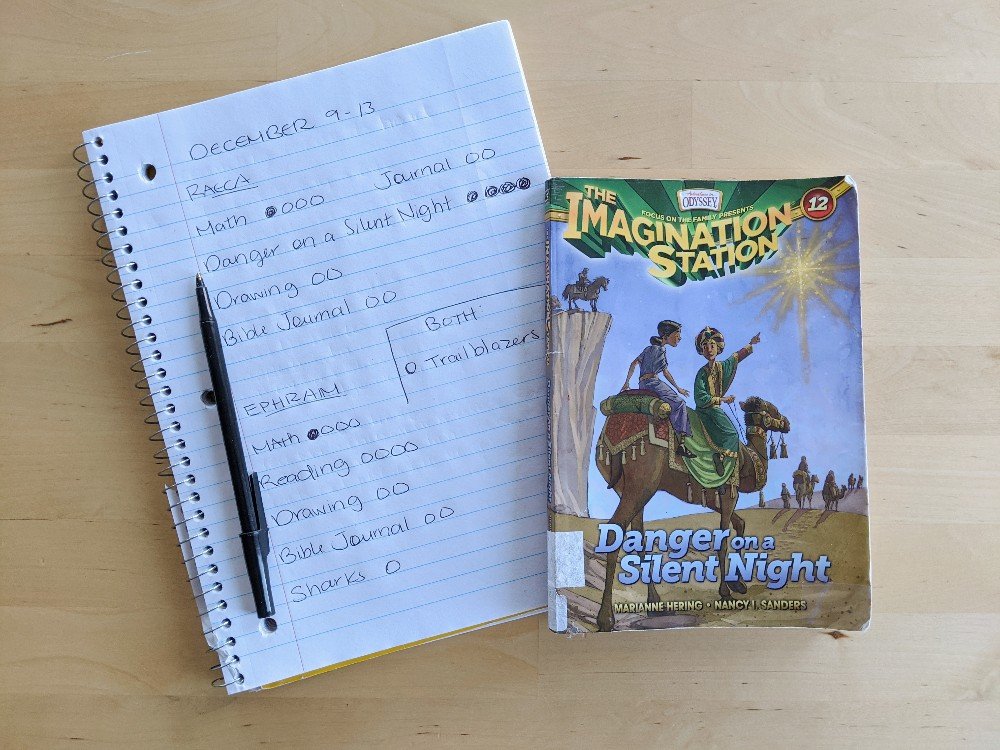 DECEMBER 9-13
RAECA
Math 0000
Journal 00
Danger on a Silent Night 0000
Drawing 00
Bible Journal 00
BOTH
0 Trailblazers
EPHRAIM
MATH 0000
Reading 0000
Drawing 00
Bible Journal 00
Sharks 0
ODYSSEY
12
FOCUS ON THE FAMILY PRESENTS
THE
IMAGINATION
STATION
Danger on a
Silent Night
MARIANNE HERING • NANCY I. SANDERS